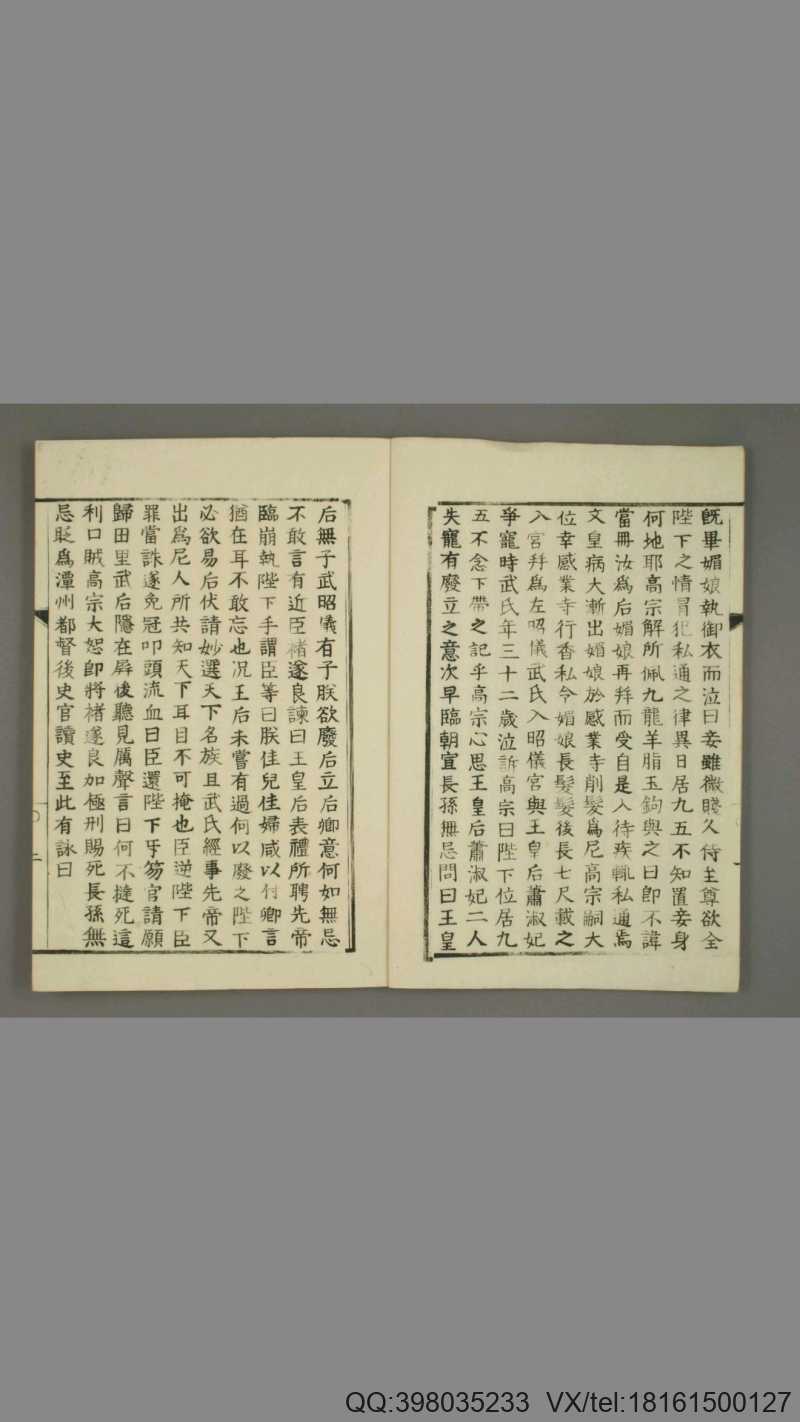 既畢媚娘執御衣而泣曰妾雖微賤久侍至尊欲全
陛下之情冒犯私通之律異日居九五不知置妾身
何地耶高宗解所佩九龍羊脂玉鉤與之曰即不諱
當冊汝為后媚娘再拜而受自是入侍疾輒私通焉
文皇病大漸出媚娘於感業寺削髮爲尼高宗嗣大
位幸感業寺行香私令媚娘長髮髮後長七尺載之
入宮拜爲左昭儀武氏入昭儀宮與王皇后蕭淑妃
爭寵時武氏年三十二歲泣訴高宗曰陛下位居九
五不念下帶之記乎高宗心思王皇后蕭淑妃二人
失寵有廢立之意次早臨朝宣長孫無忌問曰王皇
后無子武昭儀有子朕欲廢后立后卿意何如無忌
不敢言有近臣禇遂良諫曰王皇后表禮所聘先帝
臨崩執陛下手謂臣等曰朕佳兒佳婦咸以付卿言
猶在耳不敢忘也况王后未嘗有過何以廢之陛下
必欲易后伏請妙選天下名族且武氏經事先帝又
出爲尼人所共知天下耳目不可掩也臣逆陛下臣
罪當誅遂免冠叩頭流血曰臣還陛下牙笏官請願
歸田里武后隱在屏後聽見厲聲言曰何不撻死這
利口賊高宗大恕即將禇遂良加極刑賜死長孫無
忌貶爲潭州都督後史官讀史至此有詠曰
二
QQ:398035233 VX/tel:18161500127